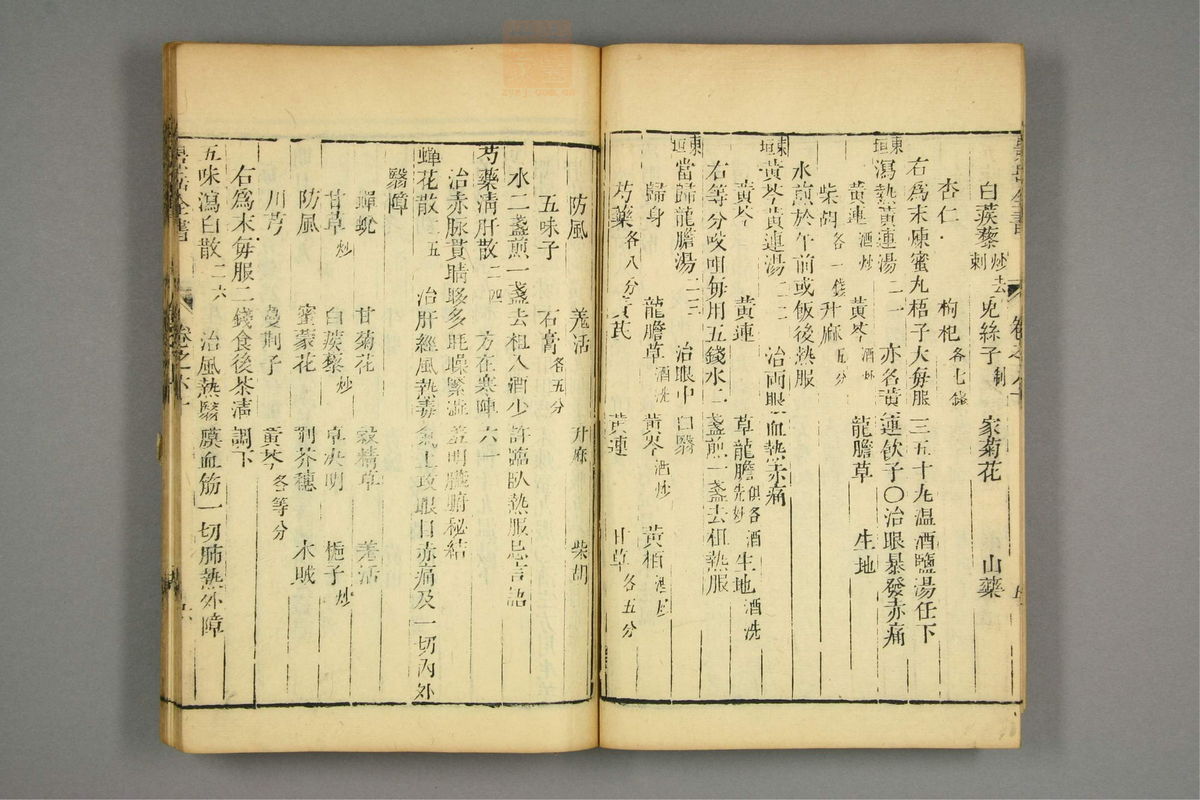 白蒺藜炒去刺 兔絲子制 家菊花 山藥
杏仁 枸杞各七錢
右爲末煉蜜丸梧子大每服三五十丸温酒鹽湯任下
東垣瀉熱黃連湯二一 亦名黃連飲子〇治眼暴發赤痛
黃連酒炒 黃芩酒炒 龍膽草 生地
柴胡各一錢 升麻五分
水煎於午前或飯後熱服
東垣黃芩黃連湯二二 治両眼血熱赤痛
黃芩 黃連 草龍膽俱各酒洗炒 生地酒洗
右等分㕮咀每用五錢水二盞煎一盞去柤熱服
東垣當歸龍膽湯二三 治眼中白翳
歸身 龍膽草酒洗 黃芩酒炒 黃栢酒炒
芍藥各八分 黃芪 黃連 甘草各五分
防風 羗活 升麻 柴胡
五味子 石膏各五分
水二盞煎一盞去柤入酒少許臨臥熱服忌言語
芍藥清肝散二四 方在寒陣六一
治赤脉貫睛眵多眊矂緊澀羞明臟腑秘結
蟬花散二五 治肝經風熱毒氣上攻眼目赤痛及一切內外
翳障
蟬蛻 甘菊花 穀精草 羗活
甘草炒 白蒺藜炒 草决明 梔子炒
防風 蜜蒙花 荆芥穗 木賊
川芎 蔓荆子 黃芩各等分
右爲末每服二錢食後茶清調下
五味瀉白散二六 治風熱翳膜血筋一切肺熱外障